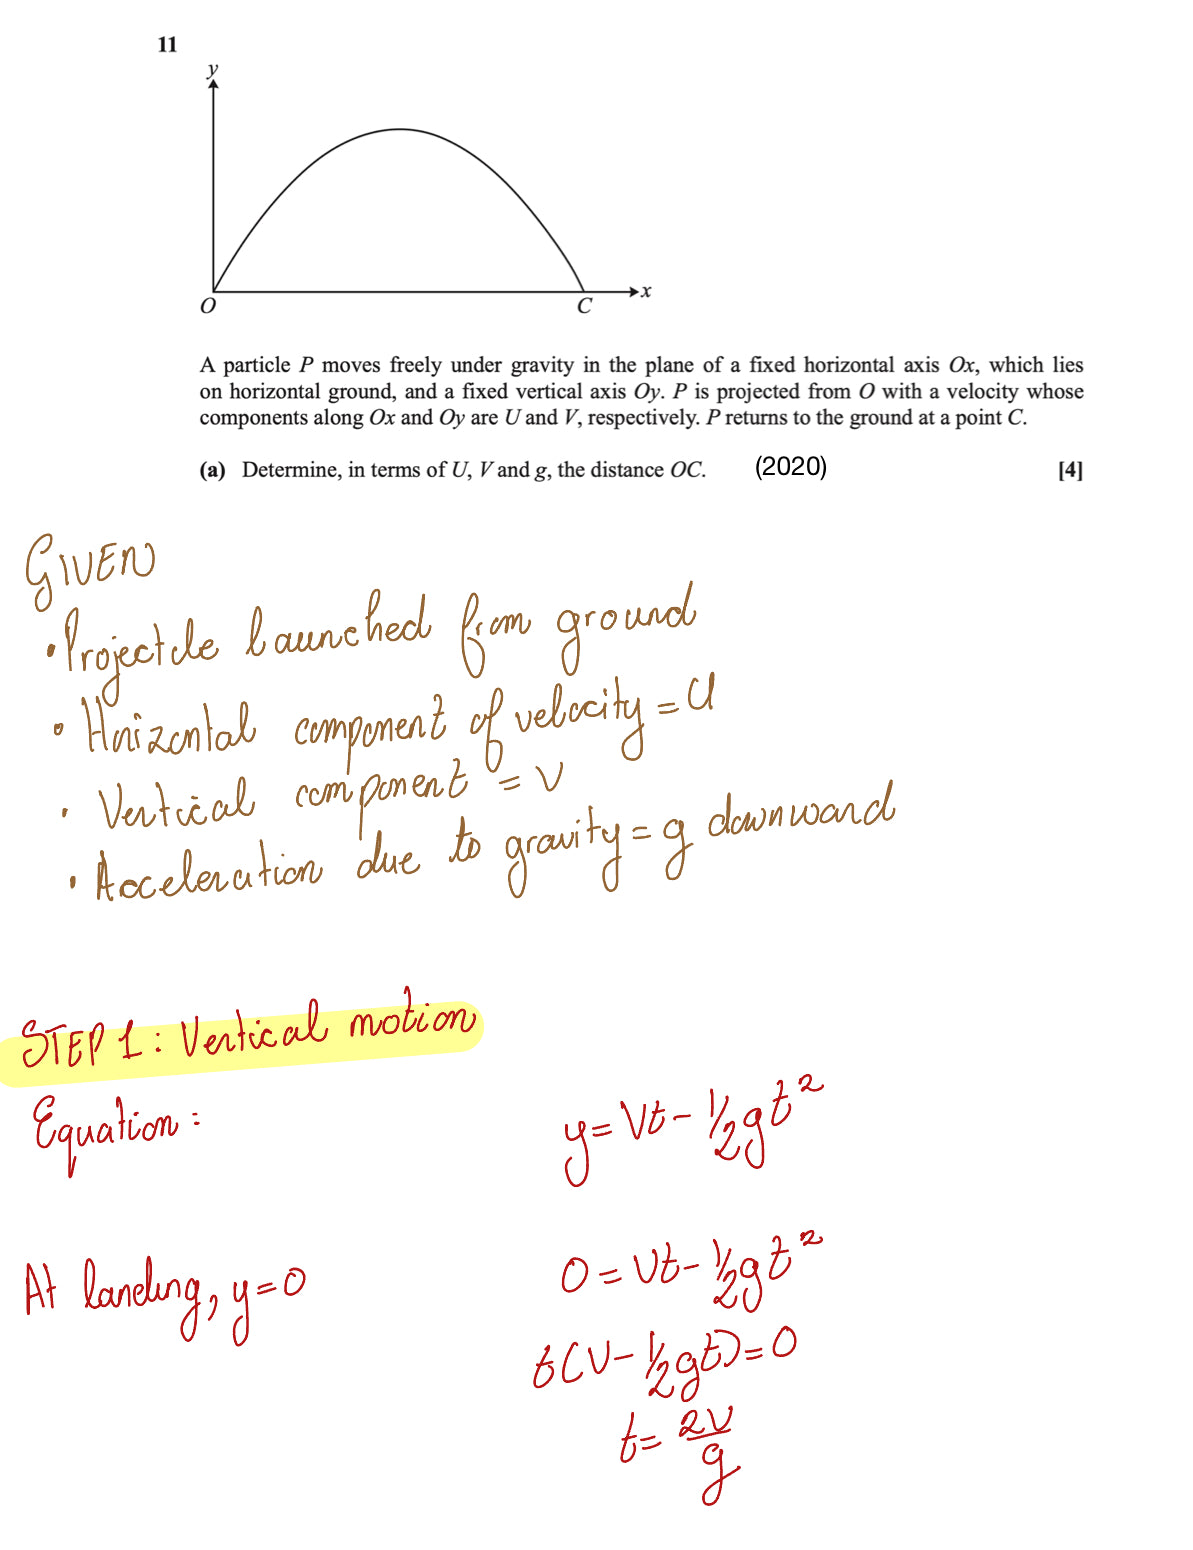 11
y
O
C
x
A particle P moves freely under gravity in the plane of a fixed horizontal axis Ox, which lies
on horizontal ground, and a fixed vertical axis Oy. P is projected from O with a velocity whose
components along Ox and Oy are U and V, respectively. P returns to the ground at a point C.
(a) Determine, in terms of U, V and g, the distance OC. (2020) [4]
GIVEN
• Projectile launched from ground
• Horizontal component of velocity = U
• Vertical component = V
• Acceleration due to gravity = g downward
STEP 1: Vertical motion
Equation: y = Vt - 1/2gt²
At landing, y = 0 0 = Vt - 1/2gt²
t(V - 1/2gt) = 0
t = 2V/g